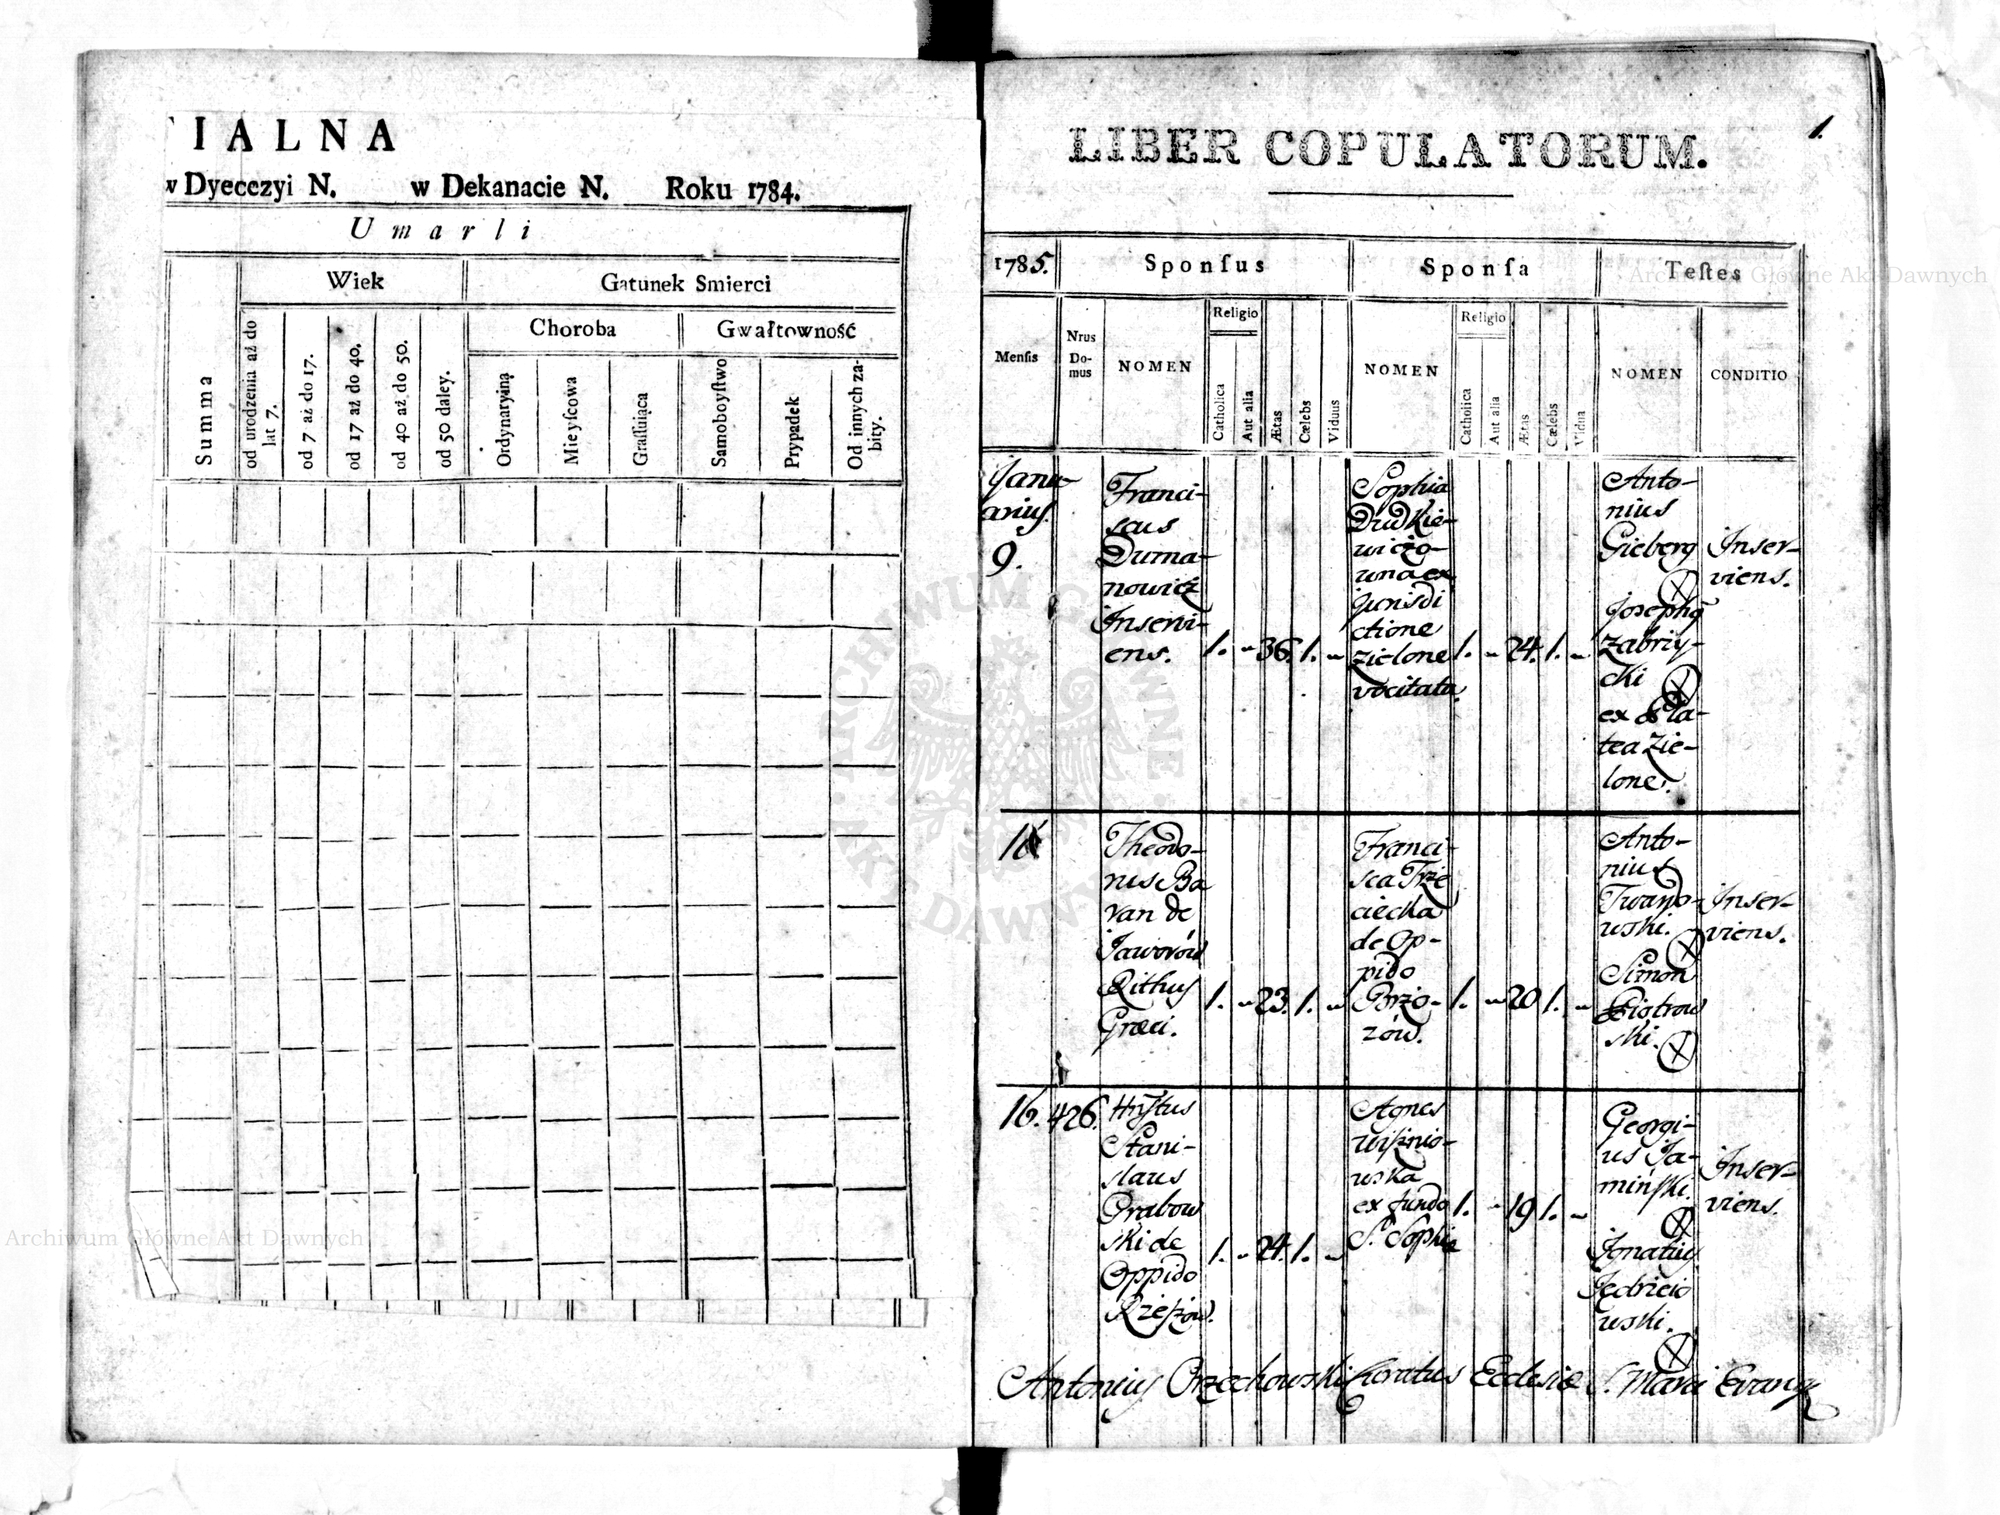 IALNA
w Dyecezyi N. w Dekanacie N. Roku 1784.
Umarli
Wiek
Gatunek Smierci
Choroba
Gwałtowność
Summa
od urodzenia aż do lat 7.
od 7 aż do 17.
od 17 aż do 40.
od 40 aż do 50.
od 50 daley.
Ordynaryiną
Mieyſcowa
Graſſuiąca
Samoboyſtwo
Prypadek
Od innych zabity.
1.
LIBER COPULATORUM.
1785.
Sponſus
Sponſa
Teſtes
Menſis
Nrus
Do-
mus
NOMEN
Religio
Catholica
Aut alia
Ætas
Cœlebs
Viduus
NOMEN
Religio
Catholica
Aut alia
Ætas
Cœlebs
Vidua
NOMEN
CONDITIO
Janu-
arius.
9.
Franci-
scus
Duma-
nowicz
Inservi-
ens.
1. - 36. 1. -
Sophia
Dudkie-
wiczo-
wna ex
jurisdi
ctione
Zielone
vocitata.
1. - 24. 1. -
Anto-
nius
Gieberg
Josephq
Zabrzy-
cki
ex Pla-
tea Zie-
lone.
Inser-
viens.
Theodo-
rus Ba
van de
Jaworów
Rithus
Græci.
1. - 23. 1. -
Franci-
sca Trze
ciecka
de Op-
pido
Brzo-
zów.
1. - 20 1. -
Anto-
nius
Twardo-
wski.
Simon
Piotrow
ski.
Inser-
viens.
16. 426.
Stani-
slaus
Grabow
ski de
Oppido
Rzeszów.
1. - 24. 1. -
Agnes
Wiśnio-
wska
ex fundo
S. Sophiæ
1. - 19 1. -
Georgi-
us Ja-
miński.
Ignatius
Jędrzeio
wski.
Inser-
viens.
Antonius Orzechowski Curatus Ecclesiæ S. Marci Evang
Archiwum Główne Akt Dawnych
Archiwum Główne Akt Dawnych
ARCHIWUM GŁÓWNE
AKT DAWNYCH